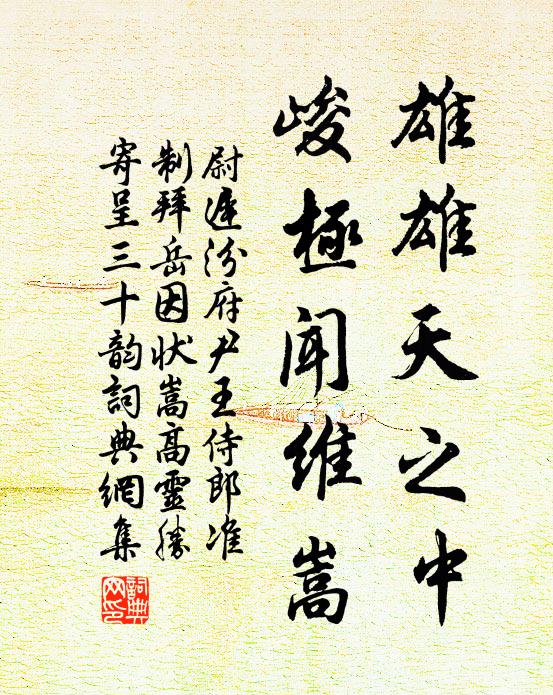 雄雄天之中
峻極聞維嵩
尉遲汾府尹王侍郎准
制拜岳因状嵩高靈勝
寄呈三十韵詞典網集
詞典網印